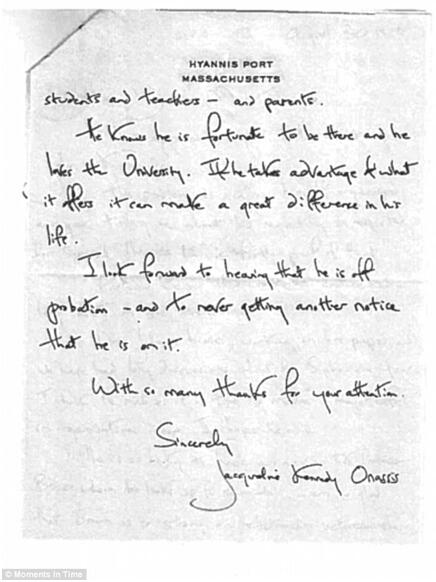 HYANNIS PORT
MASSACHUSETTS
students and teachers – and parents.
He knows he is fortunate to be there and he
loves the University. If he takes advantage of what
it offers it can make a great difference in his
life.
I look forward to hearing that he is off
probation – and to never getting another notice
that he is on it.
With so many thanks for your attention.
Sincerely
Jacqueline Kennedy Onassis
© Moments In Time